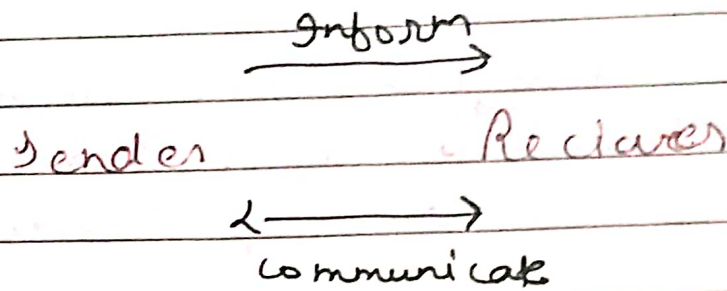 Inform
Sender Reciaver
communicate